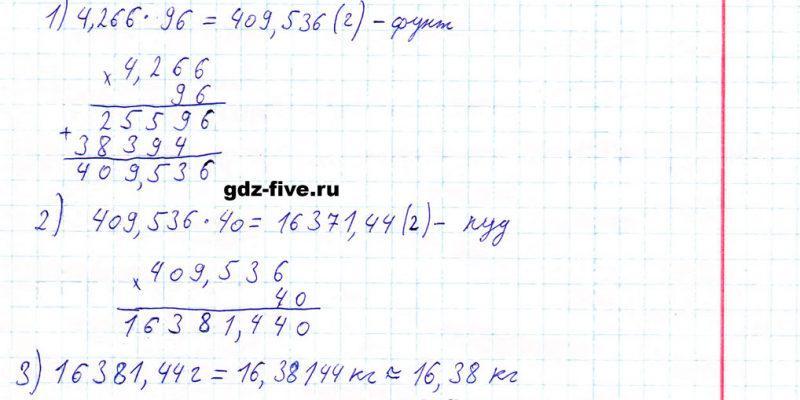 1) 4,266 · 96 = 409,536 (г) - фунт
× 4,266
96
+ 25596
38394
409,536
gdz-five.ru
2) 409,536 · 40 = 16371,44 (г) - пуд
× 409,536
40
16381,440
3) 16381,44 г = 16,38144 кг ≈ 16,38 кг